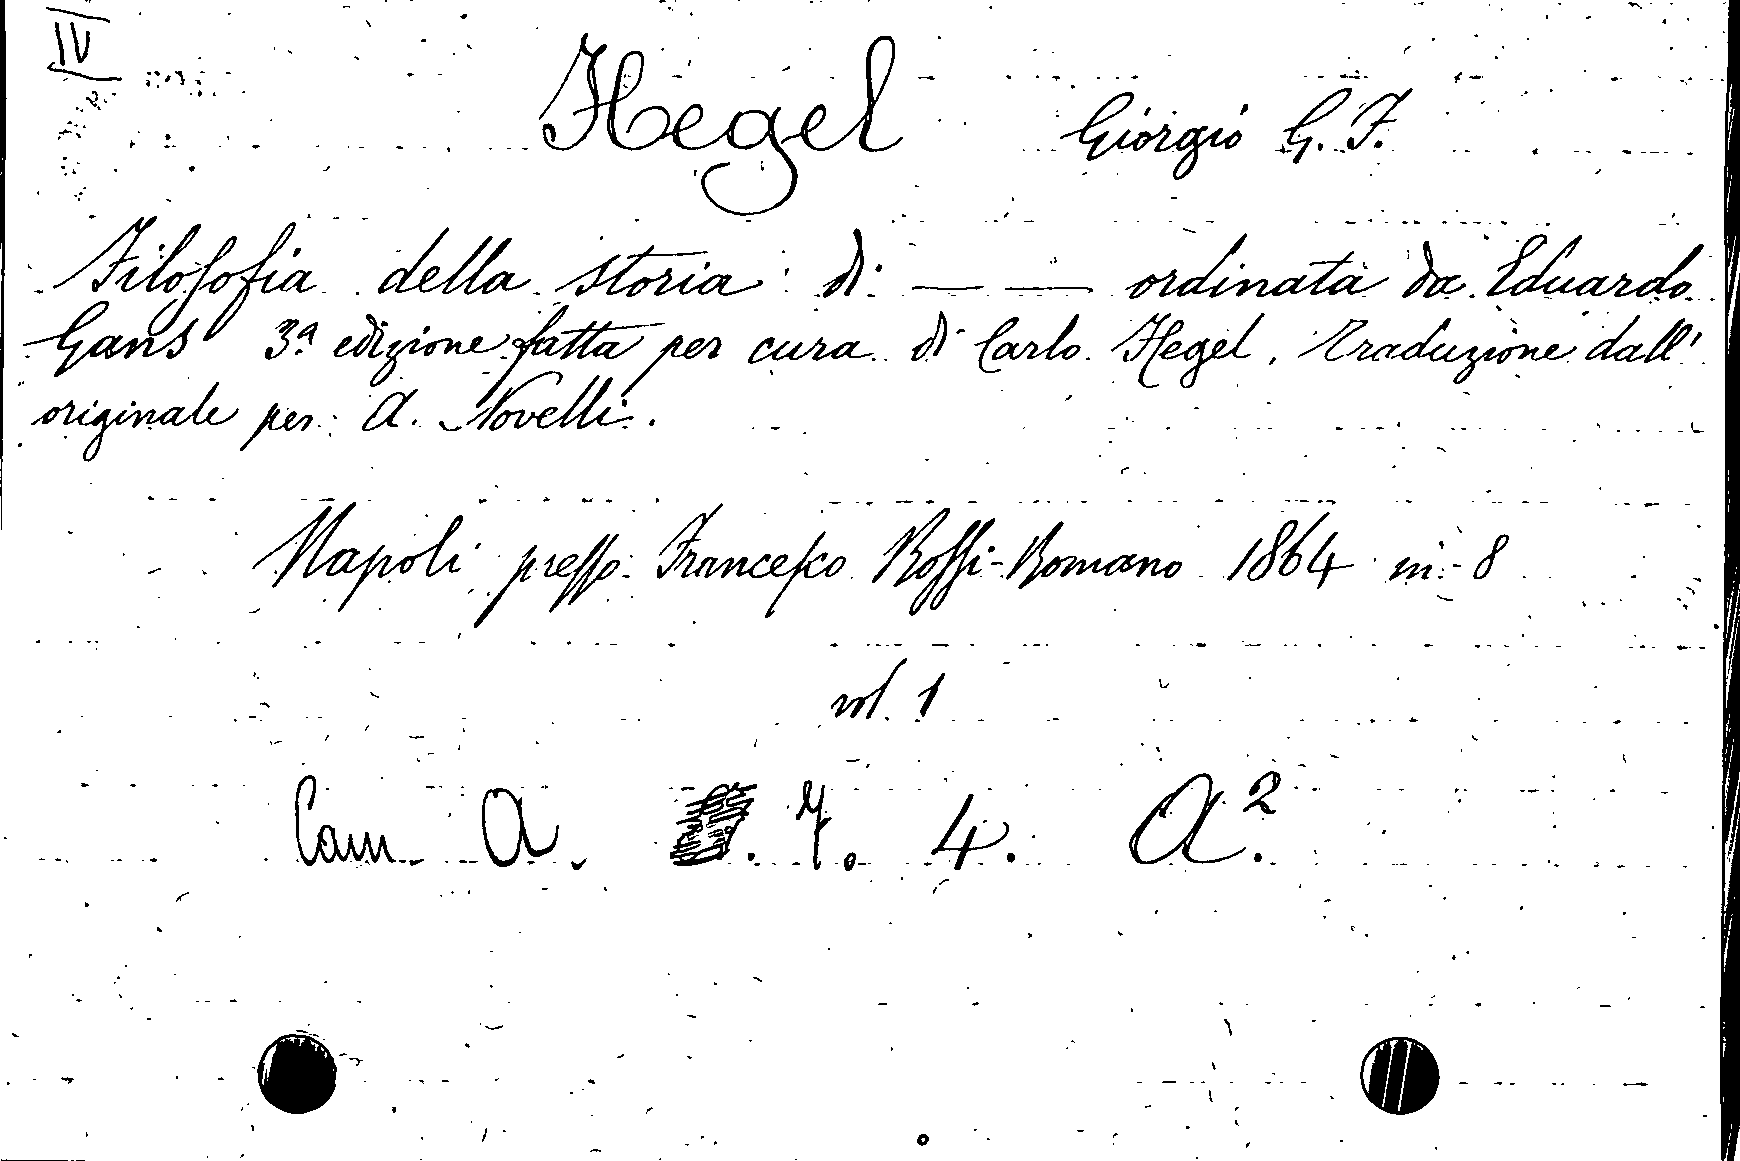 IV
Hegel Giorgio G. F.
Filosofia della storia di — — ordinata da Eduardo
Gans 3ª edizione fatta per cura di Carlo Hegel. Traduzione dall'
originale per A. Novelli.
Napoli presso Francesco Rossi-Romano 1864 in-8
vol. 1
Cam A. 7. 4. A².